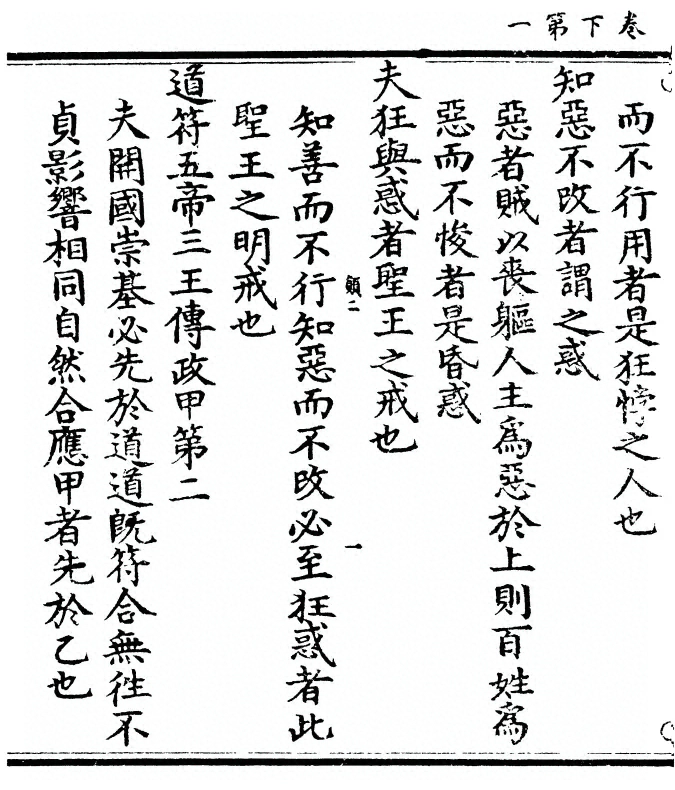 卷下第一
而不行用者是狂悖之人也
知惡不改者謂之惑
惡者賊以喪軀人主爲惡於上則百姓爲
惡而不悛者是昏惑
夫狂與惑者聖王之戒也
知善而不行知惡而不改必至狂惑者此
顛二
一
聖王之明戒也
道符五帝三王傳政甲第二
夫開國崇基必先於道道旣符合無徃不
貞影響相同自然合應甲者先於乙也